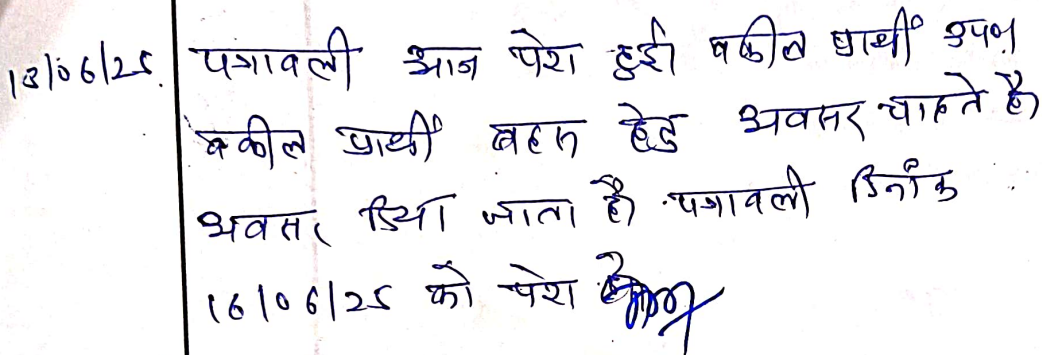 13/06/25. पत्रावली आज पेश हुई वकील प्रार्थी उपo
वकील प्रार्थी बहस हेतु अवसर चाहते है
अवसर दिया जाता है। पत्रावली दिनाँक
16/06/25 को पेश हो